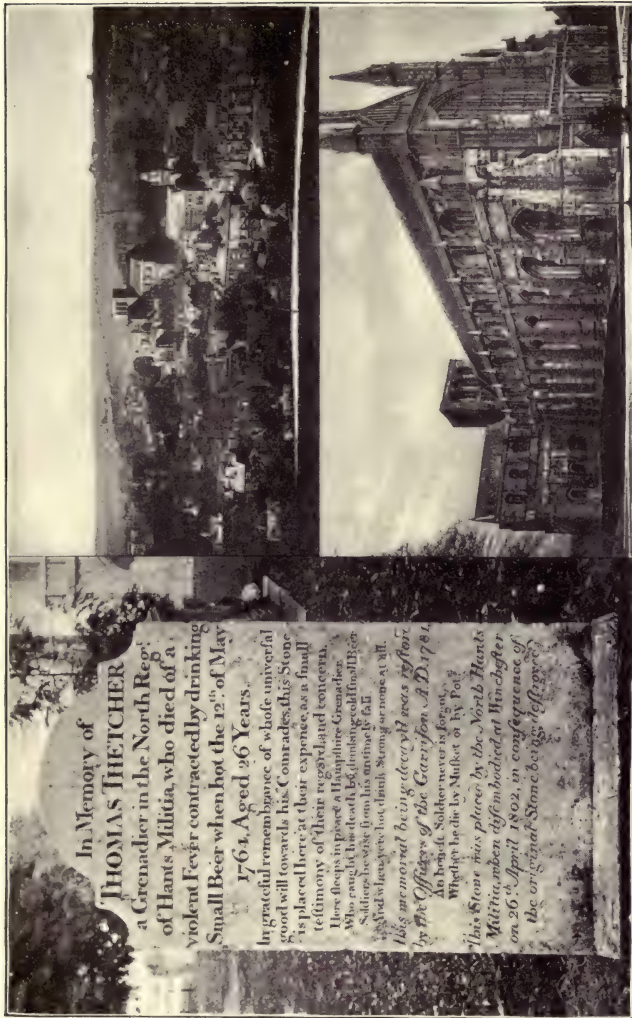 In Memory of
THOMAS THETCHER
a Grenadier in the North Regt.
of Hants Militia, who died of a
violent Fever contracted by drinking
Small Beer when hot the 12th. of May
1764, Aged 26 Years.
In grateful remembrance of whose universal
good will towards his Comrades, this Stone
is placed here at their expence, as a small
testimony of their regard and concern.
Here sleeps in peace a Hampshire Grenadier,
Who caught his death by drinking cold small Beer
Soldiers be wise from his untimely fall
And when ye're hot drink Strong or none at all.
This memorial being decay'd was restor'd
by the Officers of the Garrison A.D. 1781.
An honest Soldier never is forgot,
Whether he die by Musket or by Pot.
This Stone was placed by the North Hants
Militia, when disembodied at Winchester
on 26th April 1802, in consequence of
the original Stone being destroyed.